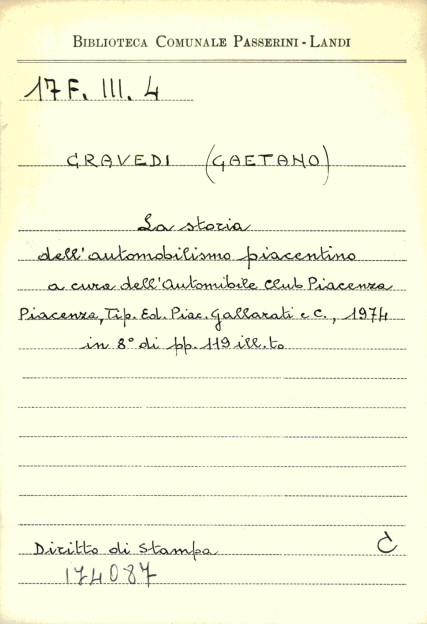 BIBLIOTECA COMUNALE PASSERINI - LANDI
17 F. III. 4
GRAVEDI (GAETANO)
La storia
dell'automobilismo piacentino
a cura dell'Automibile Club Piacenza
Piacenza, Tip. Ed. Piac. Gallarati e C., 1974
in 8° di pp. 119 ill.to
Diritto di Stampa
174087